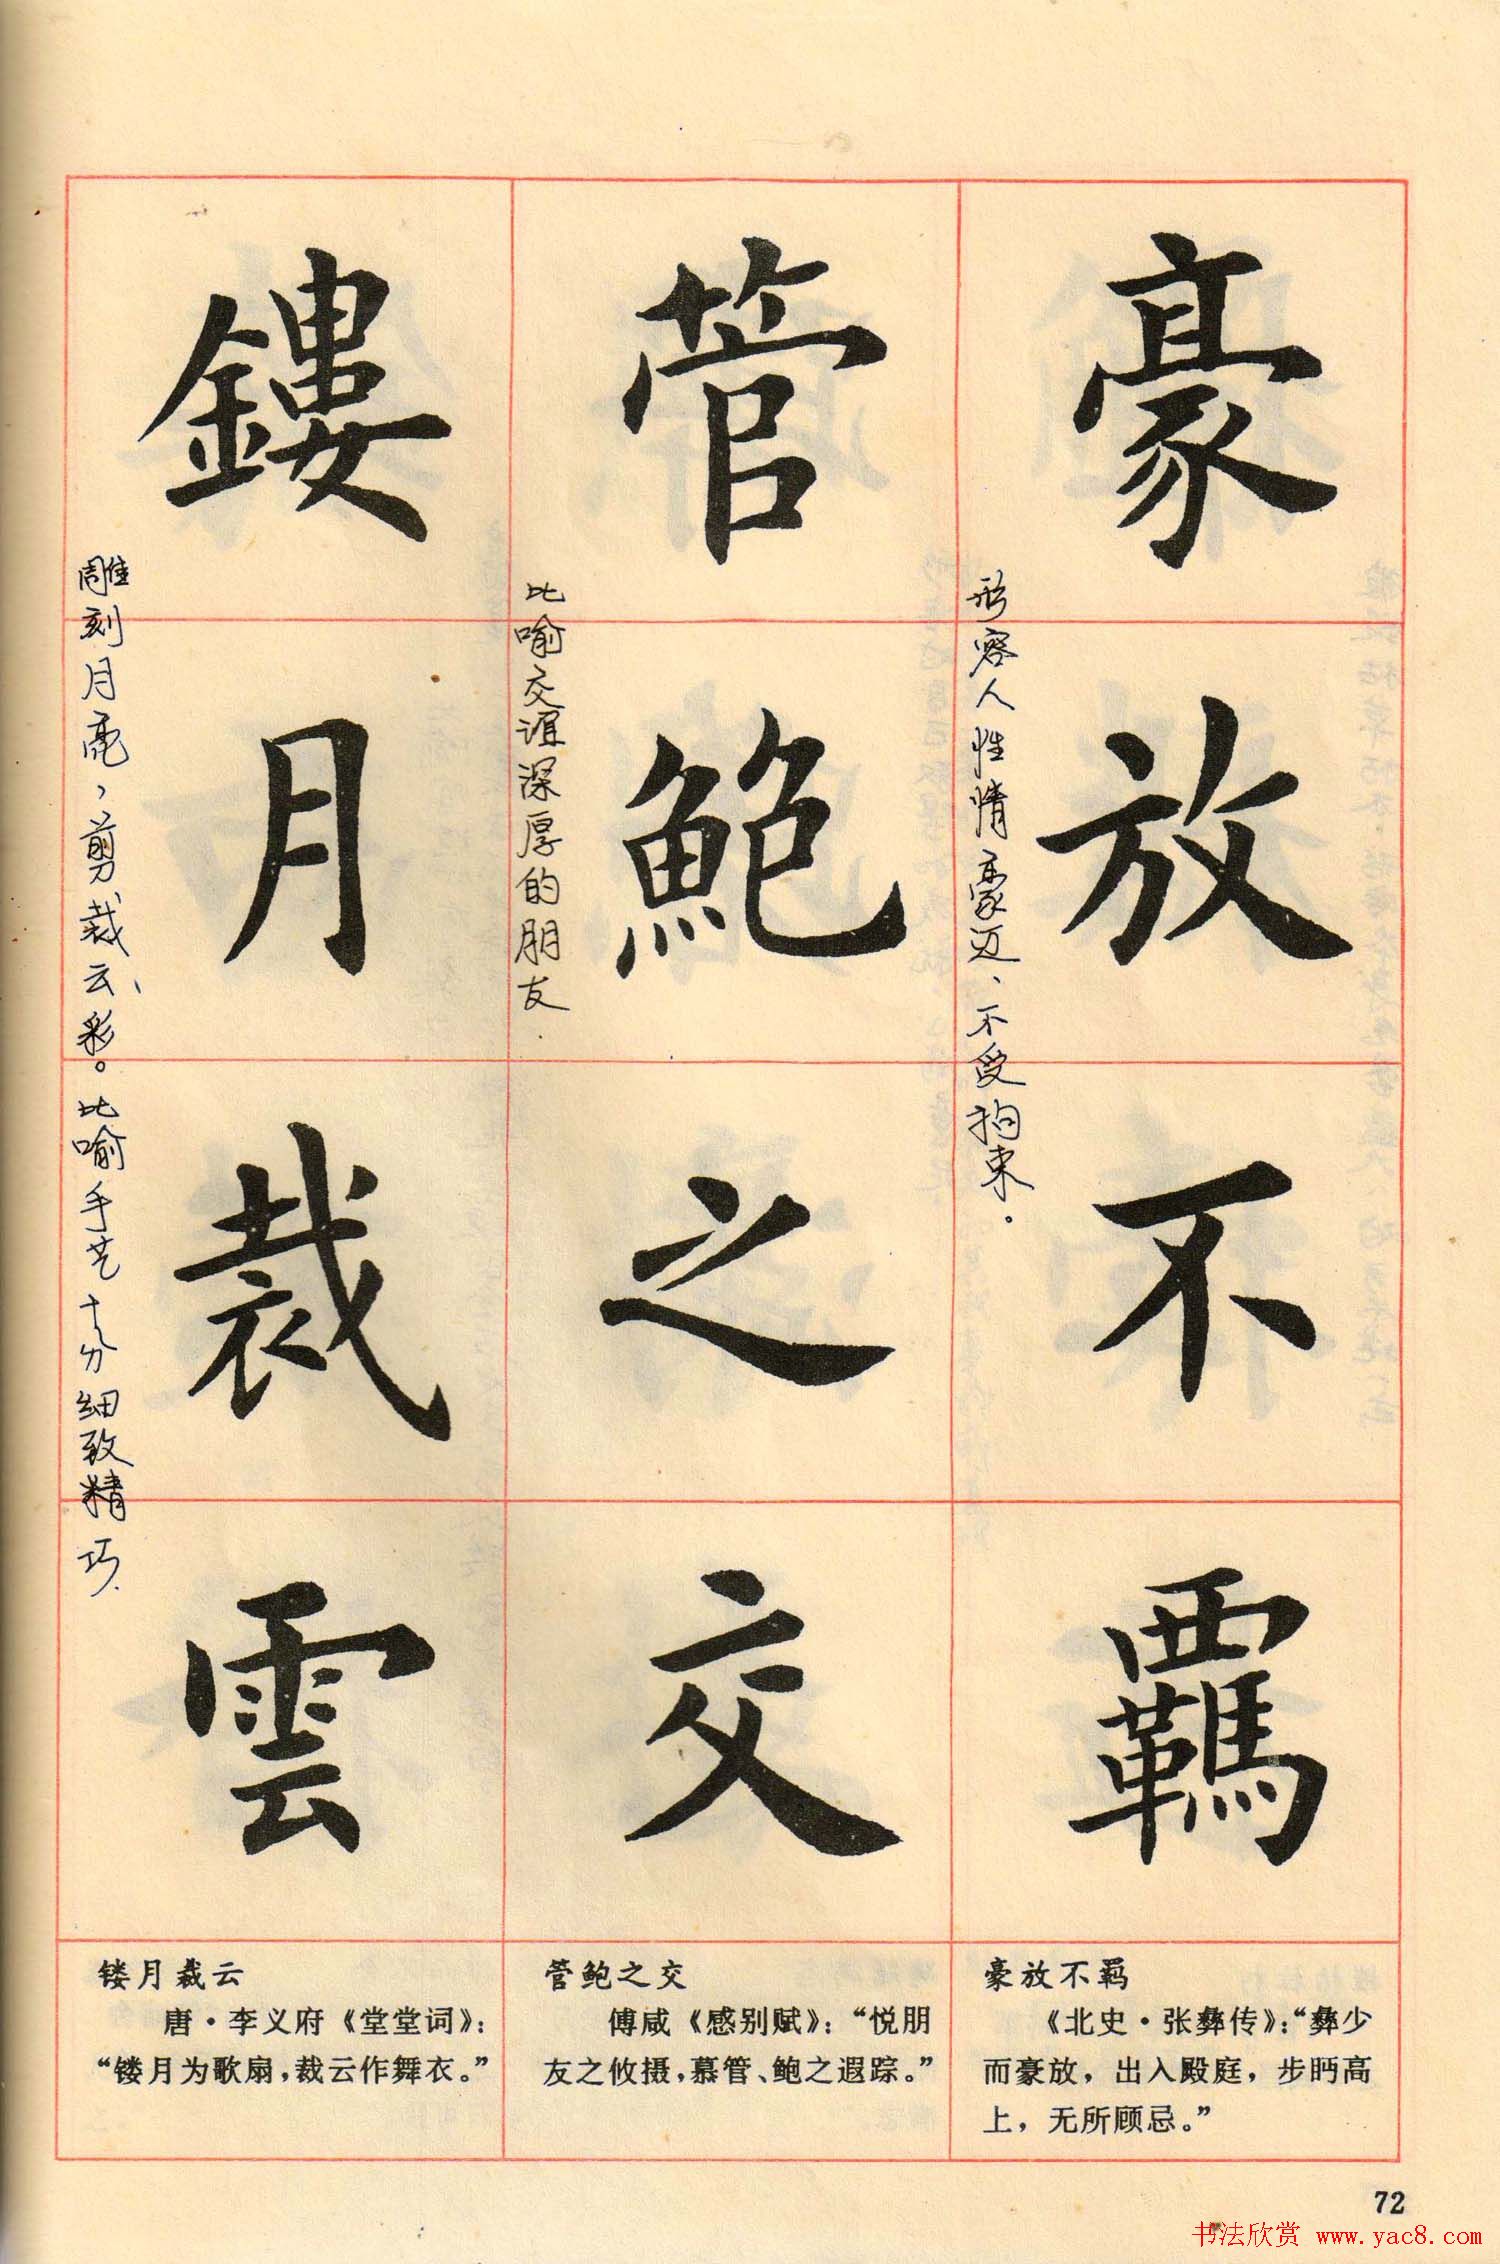 豪放不羈
形容人性情豪迈、不受拘束。
管鮑之交
比喻交谊深厚的朋友
鏤月裁雲
雕刻月亮，剪裁云彩。比喻手艺十分细致精巧.
豪放不羁
《北史·张彝传》：“彝少
而豪放，出入殿庭，步眄高
上，无所顾忌。”
管鲍之交
傅咸《感别赋》：“悦朋
友之攸摄，慕管、鲍之遐踪。”
镂月裁云
唐·李义府《堂堂词》：
“镂月为歌扇，裁云作舞衣。”
72
书法欣赏 www.yac8.com